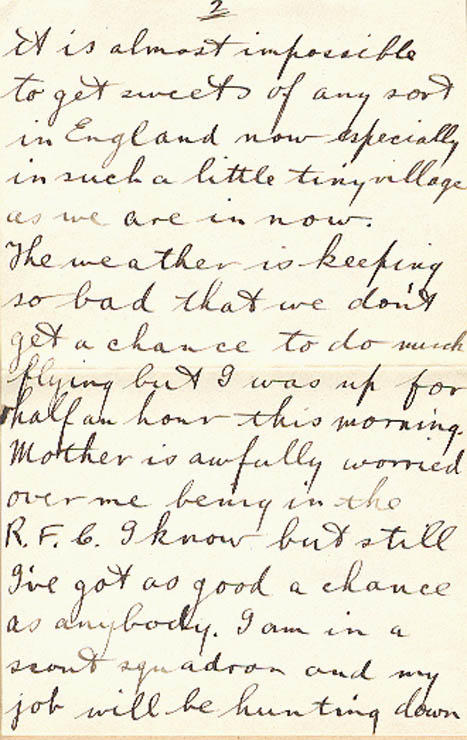 2
it is almost impossible
to get sweets of any sort
in England now especially
in such a little tiny village
as we are in now.
The weather is keeping
so bad that we don't
get a chance to do much
flying but I was up for
half an hour this morning.
Mother is awfully worried
over me being in the
R.F.C. I know but still
I've got as good a chance
as anybody. I am in a
scout squadron and my
job will be hunting down